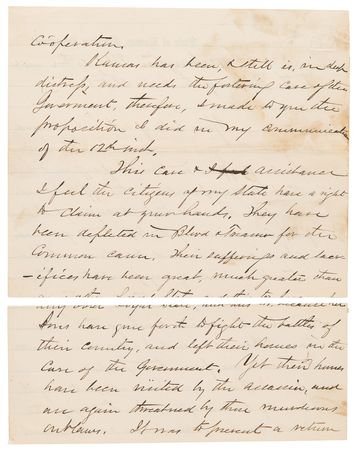 coöperation.
Kansas has been, & still is, in deep
distress, and needs the fostering care of the
Government, therefore, I made to you the
proposition I did in my communication
of the 12th inst.
This care & assistance
I feel the citizens of my State have a right
to claim at your hands. They have
been depleted in Blood & Treasure for the
Common cause. Their sufferings and sacr-
-ifices have been great, much greater than
any other Loyal State, and this is because her
Sons have gone forth to fight the battles of
their Country, and left their homes in the
Care of the Government. Yet their homes
have been visited by the assassin, and
are again threatened by these murderous
outlaws. It was to prevent a return